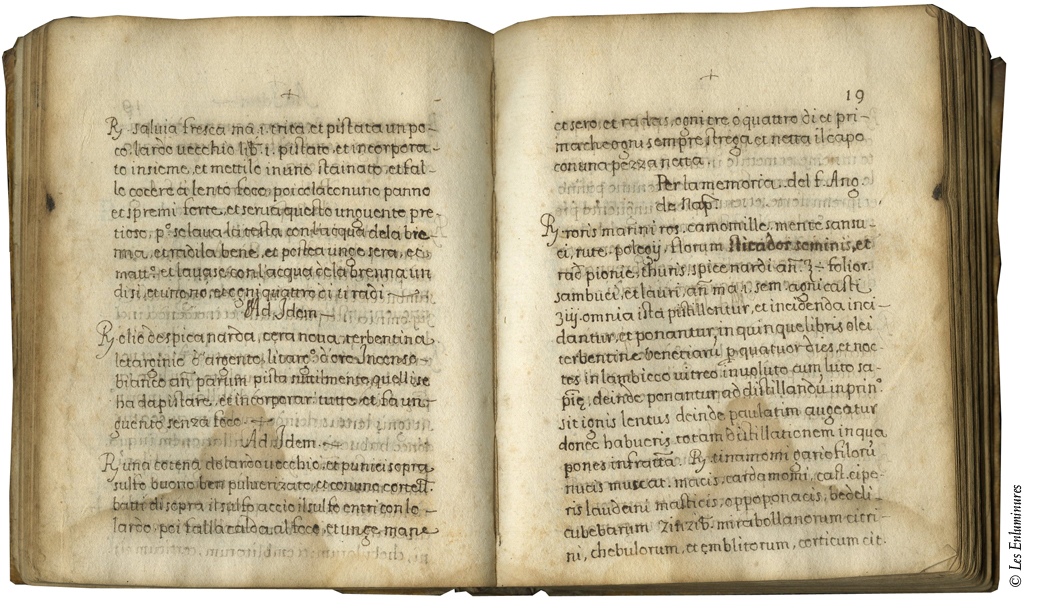 +
℞ salvia fresca ma. i. trita, et pistata un po-
co. lardo vecchio lib. i. pistato, et incorpora-
to insieme, et mettilo in uno stainato, et fal-
lo cocere a lento foco, poi cola con uno panno
et spremi forte, et serva questo unguente pre-
tioso, pº. se lava la testa con l'acqua de la bre
nna, et radila bene, et postea unge sera, et
matt. et lavase con l'acqua de la brenna un
di si, et uno no, et ogni quattro di ti radi
Ad Idem.
℞ olio de spica narda, cera nova, terbentina
letarginio d'argento, litargº. d'oro Incenso
bianco an. parum pista sutilmente, quelli se
ha da pistare, et incorporar tutte, et fa un-
guento senza foco.
Ad Idem.
℞ una cotena de lardo vecchio, et punici sopra
sulfo buono ben pulverizato, et con uno cortell.
batti di sopra il sulfo accio il sulfo entri con lo
lardo, poi falla calda al foco, et unge mane
+
19
et sero, et radas, ogni tre o quattro di et pri-
ma che ogni sempre strega et netta il capo
con una pezza netta.
Per la memoria. del f. Ang.
de Nap.
℞ roris marini ros. camomille, mente sansu-
ci, rute, polegij, florum sticados seminis, et
rad pionie, thuris, spice nardi an. ℥ folior.
sambuci, et lauri, an. ma i. sem. agni casti
℥iij omnia ista pistillentur, et incidenda inci-
dantur, et ponantur, in quinque libris olei
terbentine venetiarū p quatuor dies, et noc-
tes in lambicco vitreo involuto cum luto sa-
pię, deinde ponantur ad distillandū in prinº.
sit ignis lentus deinde paulatim augeatur
donec habueris totam distillationem in qua
pones infratta. ℞ cinamomi gariofilorū
nucis muscat. macis, cardamomi, cast. eipe-
ris laudeini masticis, oppoponacis, bedeli-
cubebarum zinzib. mirabollanorum citri-
ni, chebulorum, et emblitorum, corticum cit.
© Les Enluminures